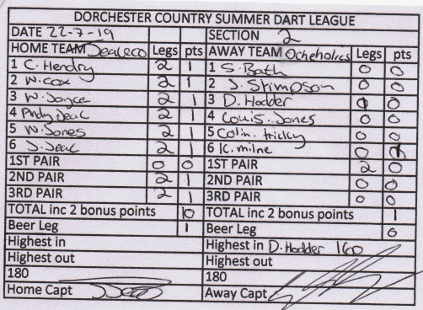 DORCHESTER COUNTRY SUMMER DART LEAGUE
DATE 22-7-19 SECTION 2
HOME TEAM Dealeco Legs pts AWAY TEAM Ocheholics Legs pts
1 C. Hendry 2 1 1 S. Bath 0 0
2 W. Cox 2 1 2 J. Stimpson 0 0
3 W. Joyce 2 1 3 D. Hodder 0
4 Andy Deac 2 1 4 Louis. Jones 0 0
5 W. Jones 2 1 5 Colin. tricky 0 0
6 J. Deac 2 1 6 K. milne 0
1ST PAIR 0 0 1ST PAIR 2 0
2ND PAIR 2 1 2ND PAIR 0 0
3RD PAIR 2 1 3RD PAIR 0 0
TOTAL inc 2 bonus points 10 TOTAL inc 2 bonus points 1
Beer Leg 1 Beer Leg 0
Highest in Highest in D. Hodder 160
Highest out Highest out
180 180
Home Capt Away Capt